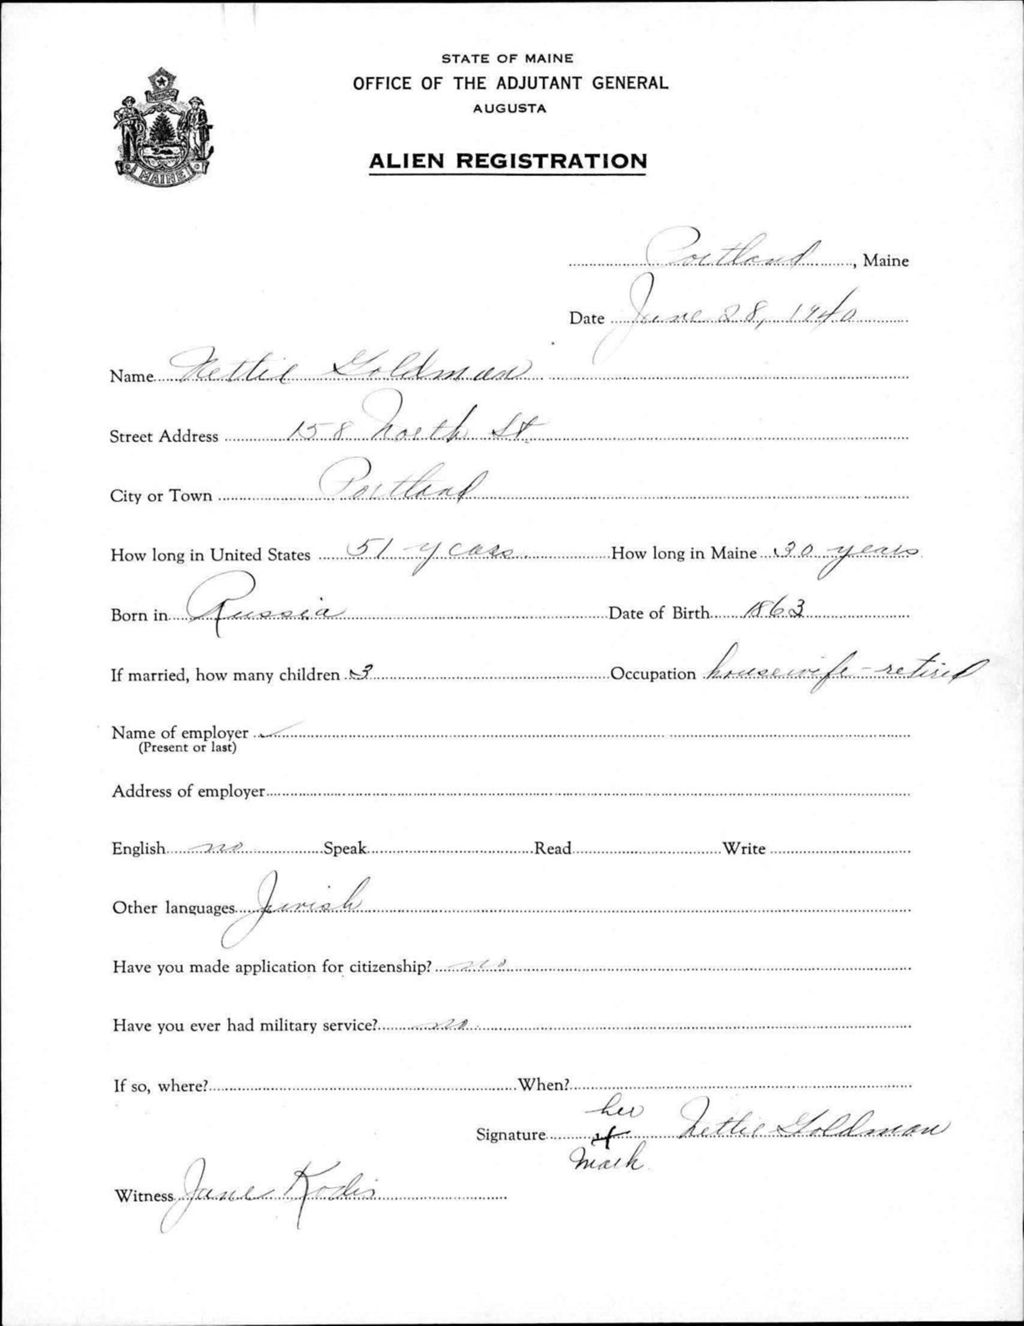 STATE OF MAINE
OFFICE OF THE ADJUTANT GENERAL
AUGUSTA
MAINE
ALIEN REGISTRATION
Portland, Maine
Date June 28, 1940
Name Nettie Goldman
Street Address 158 North St.
City or Town Portland
How long in United States 51 years How long in Maine 30 years
Born in Russia Date of Birth 1863
If married, how many children 3 Occupation housewife - retired
Name of employer
(Present or last)
Address of employer
English no Speak Read Write
Other languages Jewish
Have you made application for citizenship? no
Have you ever had military service? no
If so, where? When?
her
Signature x Nettie Goldman
mark
Witness Jane Kodis